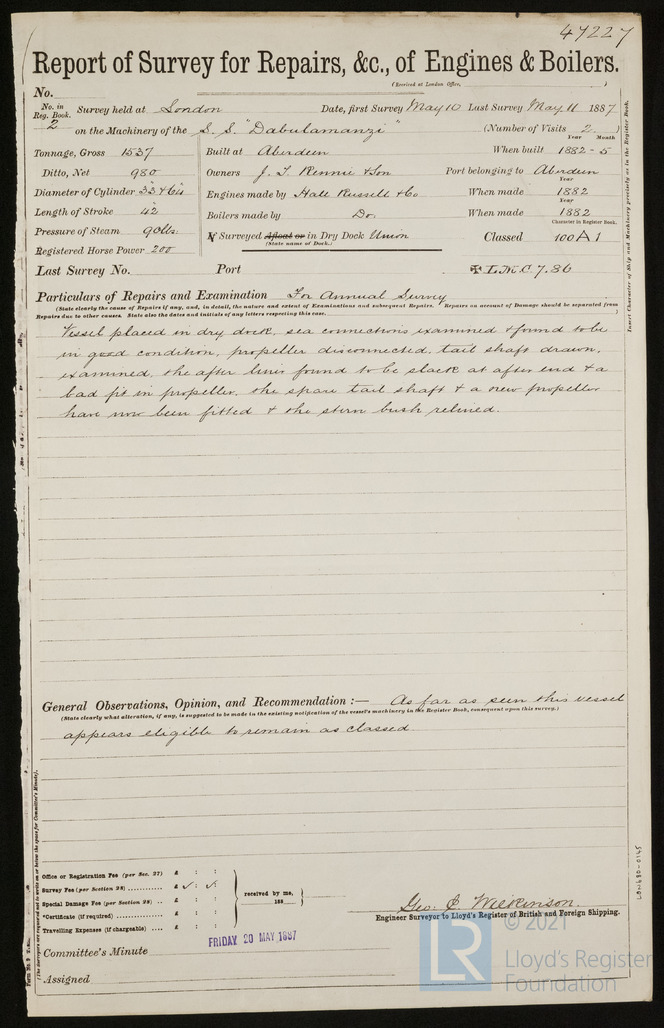 47227
Report of Survey for Repairs, &c., of Engines & Boilers.
(Received at London Office,
No.
No. in Reg. Book. 2 Survey held at London Date, first Survey May 10 Last Survey May 11 1887
on the Machinery of the S. S. "Dabulamanzi" (Number of Visits 2)
Tonnage, Gross 1537 Built at Aberdeen When built Year Month 1882 - 5
Ditto, Net 980 Owners J. T. Rennie & Son Port belonging to Aberdeen
Diameter of Cylinder 33 & 64 Engines made by Hall Russell & Co When made Year 1882
Length of Stroke 42 Boilers made by Do. When made Year 1882
Pressure of Steam 90 lbs. If Surveyed Afloat or in Dry Dock Union Classed Character in Register Book. 100 A 1
(State name of Dock.)
Registered Horse Power 200
Last Survey No. Port ✠ L.M.C. 7.86
Particulars of Repairs and Examination For Annual Survey
(State clearly the cause of Repairs if any, and, in detail, the nature and extent of Examinations and subsequent Repairs. Repairs on account of Damage should be separated from
Repairs due to other causes. State also the dates and initials of any letters respecting this case.
Vessel placed in dry dock, sea connections examined & found to be
in good condition, propeller disconnected, tail shaft drawn,
examined, the after liner found to be slack at after end & a
bad fit in propeller, the spare tail shaft & a new propeller
have now been fitted & the stern bush relined.
General Observations, Opinion, and Recommendation :— As far as seen this vessel
(State clearly what alteration, if any, is suggested to be made in the existing notification of the vessel's machinery in the Register Book, consequent upon this survey.)
appears eligible to remain as classed
Office or Registration Fee (per Sec. 27) £ : :
Survey Fee (per Section 28) £
Special Damage Fee (per Section 28) £ : :
*Certificate (if required) £ : :
Travelling Expenses (if chargeable) £ : :
received by me,
188
Geo. C. Wilkinson.
Engineer Surveyor to Lloyd's Register of British and Foreign Shipping.
FRIDAY 20 MAY 1887
Committee's Minute
Assigned
Insert Character of Ship and Machinery precisely as in the Register Book.
(The Surveyors are requested not to write on or below the space for Committee's Minute).
LR
© 2021
Lloyd's Register
Foundation